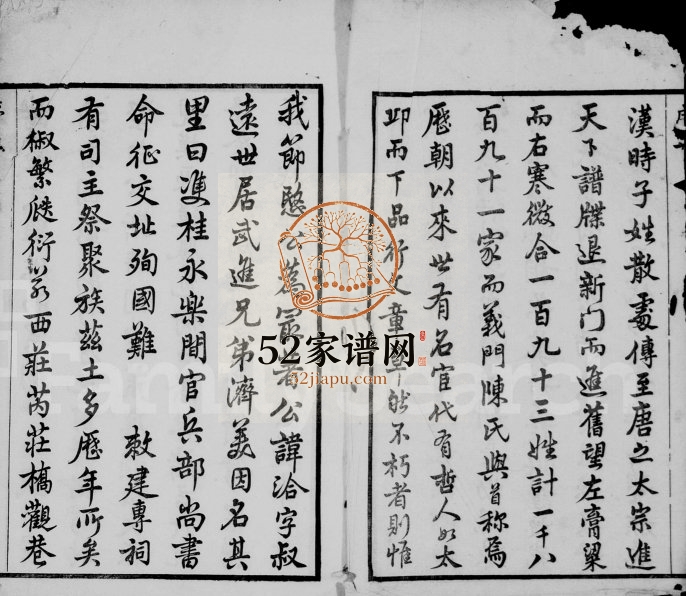 漢時子姓散處傳至唐之太宗進
天下譜牒退新门而進舊望左膏梁
而右寒微合一百九十三姓計一千八
百九十一家而義門陳氏與首称焉
歷朝以來世有名宦代有哲人如太
邱而下品行文章 然不朽者則惟
我節愍公為最著公諱洽字叔
遠世居武進兄弟濟美因名其
里曰䨇桂永樂間官兵部尚書
命征交址殉國難 敕建專祠
有司主祭聚族茲土多歷年所矣
而椒繁瓞衍若西莊芮莊橋觀巷
52家谱网
52jiapu.com